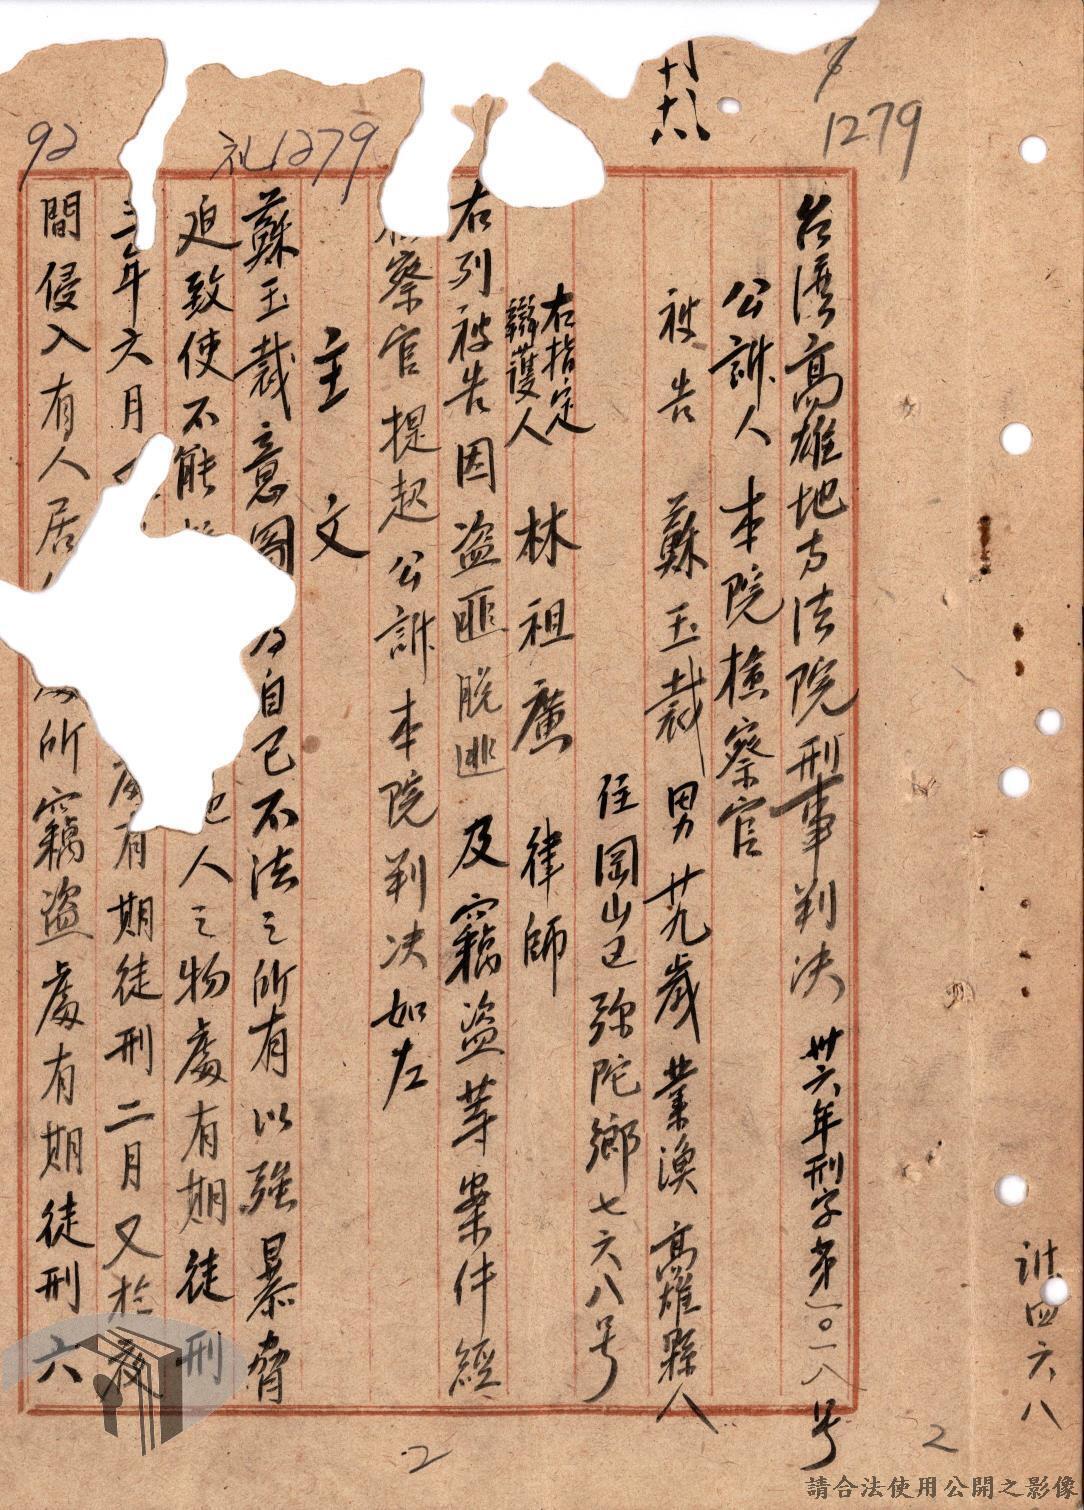 7
1279
十八
礼1279
92
台湾高雄地方法院刑事判决 卅六年刑字第一〇一八号
公訴人 本院檢察官
被告 蘇玉裁 男 廿九歲 業漁 高雄縣人
住岡山区弥陀鄉七六八号
右指定辯護人 林祖廌 律師
右列被告因盗匪脱逃及竊盗等案件經
察官提起公訴本院判决如左
主文
蘇玉裁意圖 自己不法之所有以强暴脅
迫致使不能 人之物處有期徒刑
年六月 處有期徒刑二月又於夜
間侵入有人居 所竊盗處有期徒刑六
訴四六八
2
2
請合法使用公開之影像